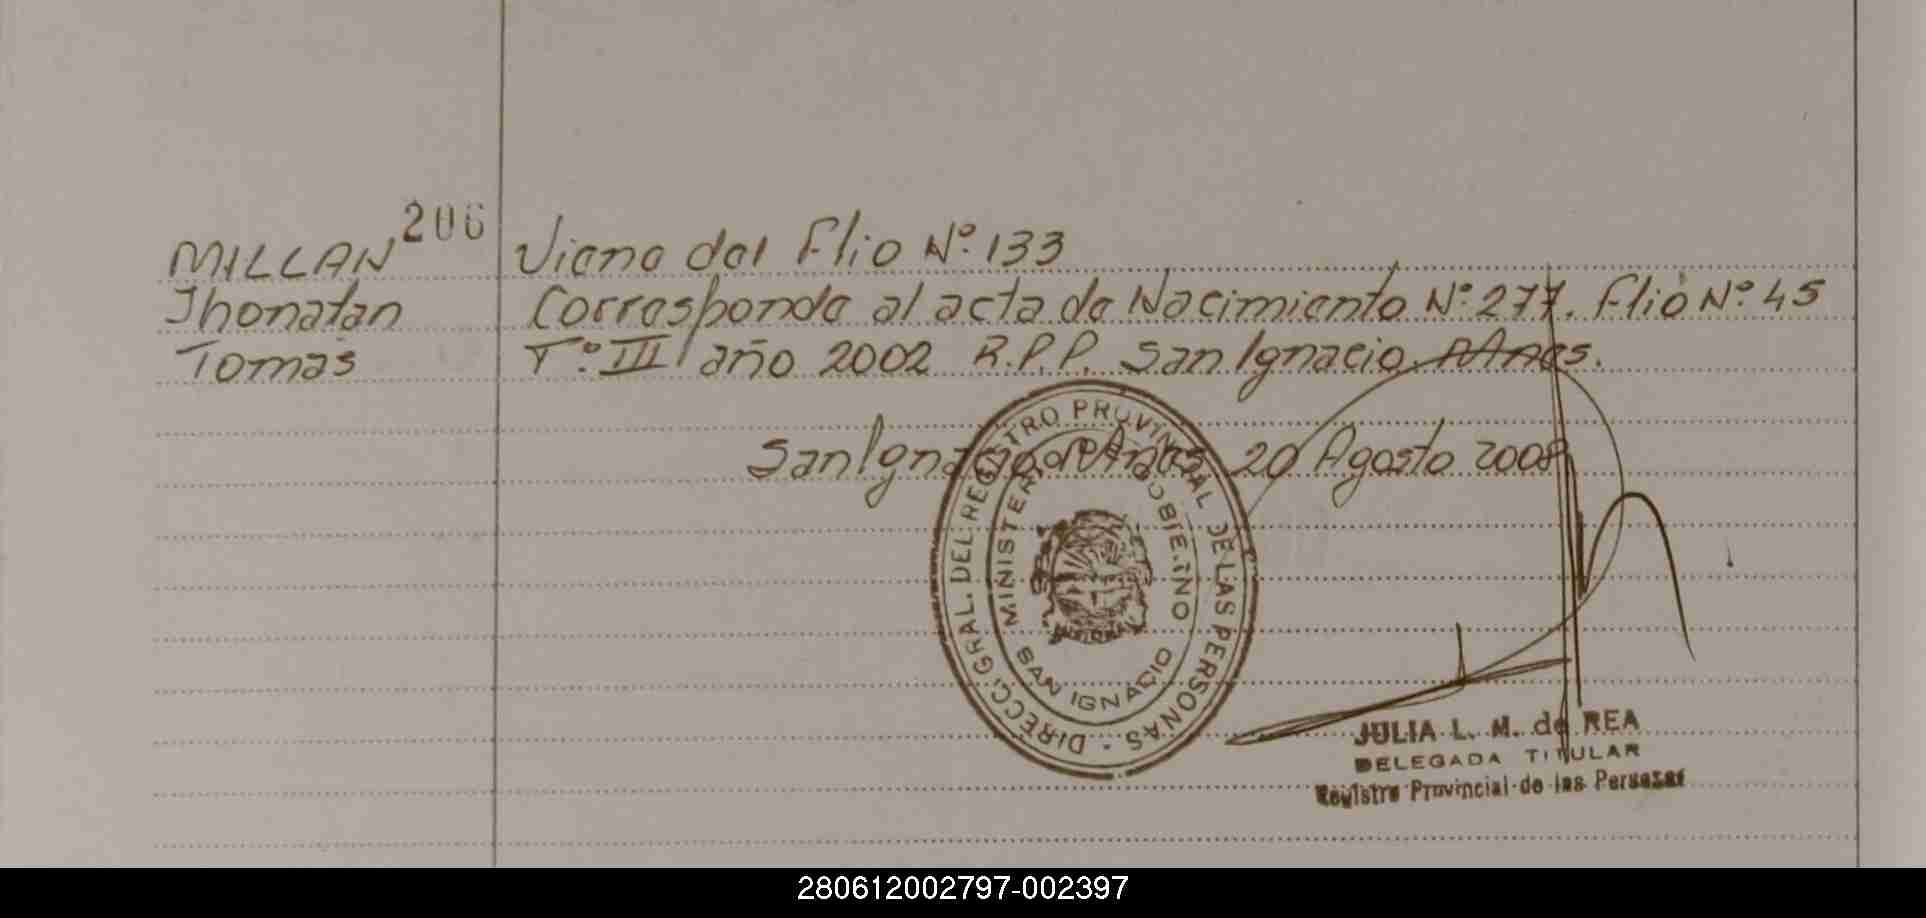 206
MILLAN
Jhonatan
Tomás
Viene del Flio Nº 133
Corresponde al acta de Nacimiento Nº 277. Flio Nº 45
Tº III año 2002 R.P.P. San Ignacio Mnes.
San Ignacio Mnes 20 Agosto 2008
DIRECC. GRAL. DEL REGISTRO PROVINCIAL DE LAS PERSONAS
MINISTERIO DE GOBIERNO
SAN IGNACIO
JULIA L. M. de REA
DELEGADA TITULAR
Registro Provincial de las Personas
280612002797-002397